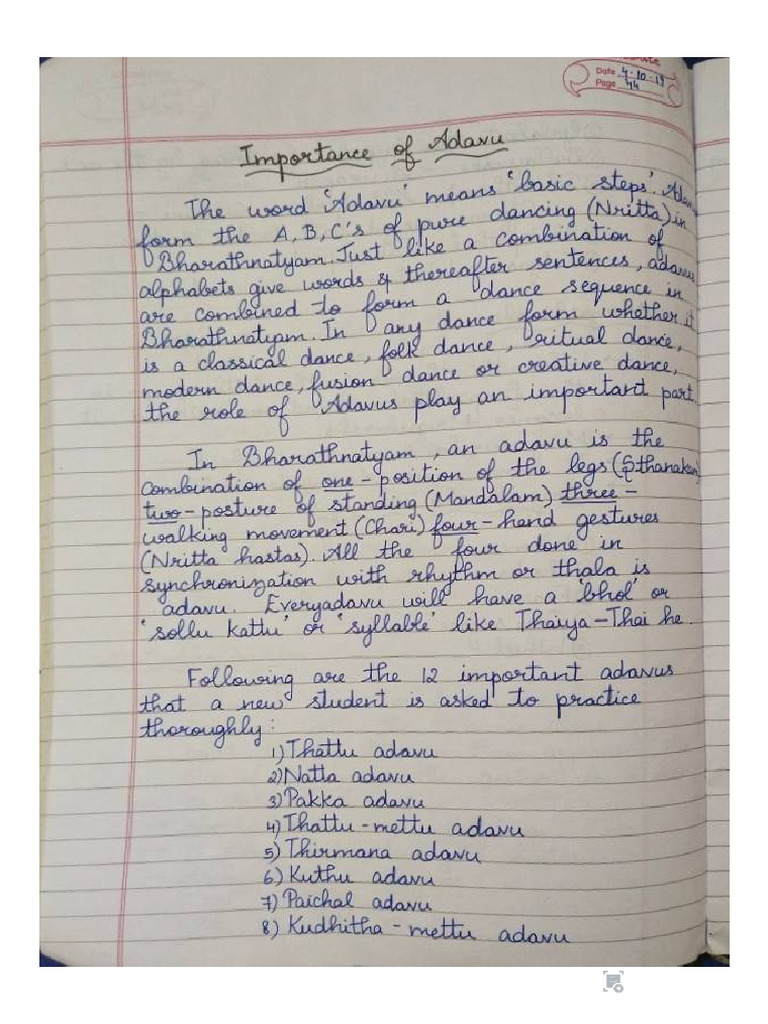 Date 4-10-19
Page 44
Importance of Adavu
The word 'Adavu' means 'basic steps'.
form the A, B, C's of pure dancing (Nritta) in
Bharathnatyam. Just like a combination of
alphabets give words & thereafter sentences, adavus
are combined to form a dance sequence in
Bharathnatyam. In any dance form whether it
is a classical dance, folk dance, ritual dance,
modern dance, fusion dance or creative dance,
the role of Adavus play an important part.
In Bharathnatyam, an adavu is the
combination of one-position of the legs (Sthanakam)
two-posture of standing (Mandalam) three-
walking movement (Chari) four-hand gestures
(Nritta hastas). All the four done in
synchronization with rhythm or thala is
adavu. Everyadavu will have a 'bhol' or
'sollu kattu' or 'syllable' like Thaiya-Thai he.
Following are the 12 important adavus
that a new student is asked to practice
thoroughly:
1) Thattu adavu
2) Natta adavu
3) Pakka adavu
4) Thattu-mettu adavu
5) Thirmana adavu
6) Kuthu adavu
7) Paichal adavu
8) Kudhitha-mettu adavu